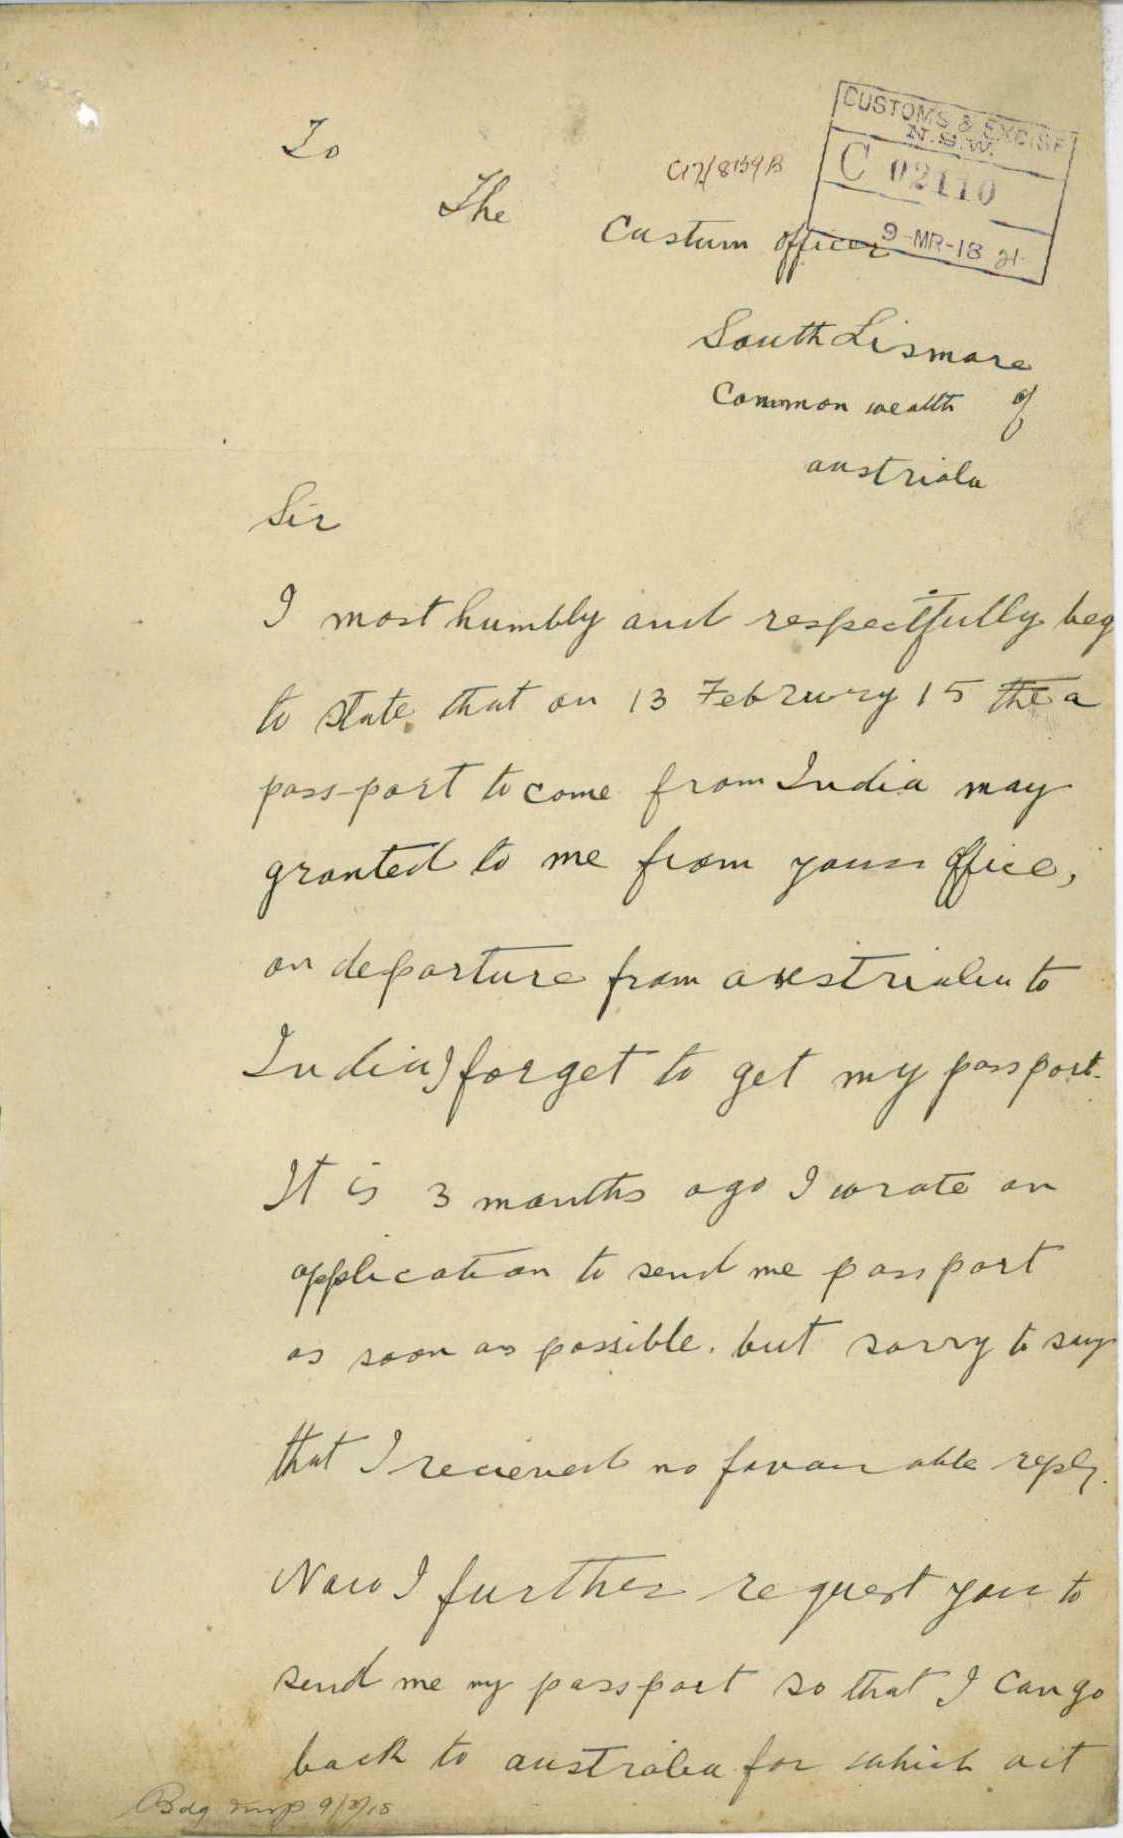 CUSTOMS & EXCISE
N.S.W.
C 02110
9-MR-18 21
To
C17/8159B
The
Custum officer
South Lismore
Common wealth of
austriala
Sir
I most humbly and respectfully beg
to state that on 13 Februry 15 the a
pass-port to come from India may
granted to me from your office,
on departure from austrialia to
India I forget to get my passport.
It is 3 months ago I wrote an
application to send me passport
as soon as possible. but sorry to say
that I recieved no favourable reply.
Now I further request you to
send me my passport so that I can go
back to australia for which act
Bdg 9/3/18